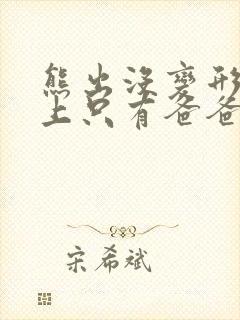 熊出没变形
上只有爸爸
宋希斌